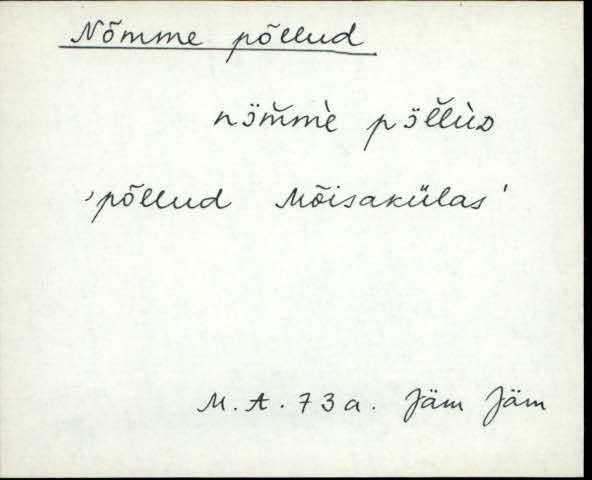 Nõmme põllud
nöm̆mè pöl̆lùᴅ
'põllud Mõisakülas'
M. A. 73 a. Jäm Jäm